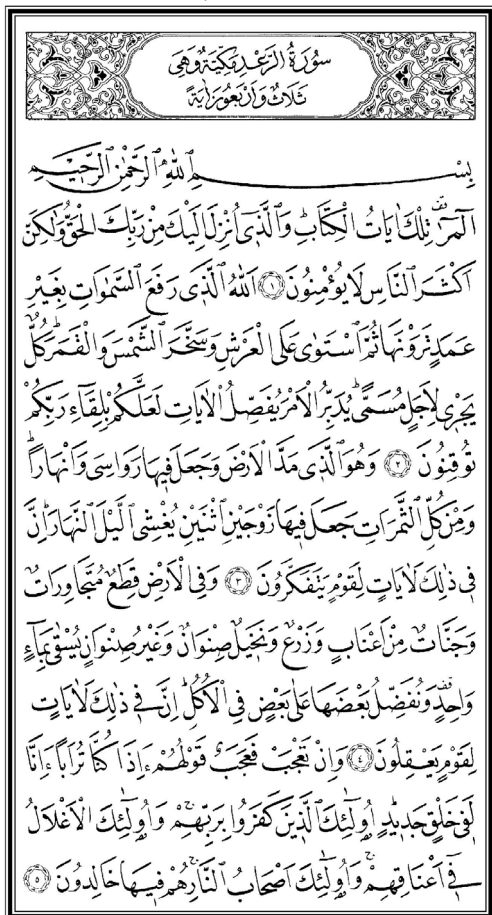 سُورَةُ الرَّعْدِ مَكِّيَّةٌ وَهِيَ
ثَلَاثٌ وَأَرْبَعُونَ اٰيَةً
بِسْمِ اللّٰهِ الرَّحْمٰنِ الرَّحِيمِ
الٓمٓرٰ تِلْكَ اٰيَاتُ الْكِتَابِ وَالَّذِٓى اُنْزِلَ اِلَيْكَ مِنْ رَبِّكَ الْحَقُّ وَلٰكِنَّ
اَكْثَرَ النَّاسِ لَا يُؤْمِنُونَ ﴿١﴾ اَللّٰهُ الَّذِى رَفَعَ السَّمٰوَاتِ بِغَيْرِ
عَمَدٍ تَرَوْنَهَا ثُمَّ اسْتَوٰى عَلَى الْعَرْشِ وَسَخَّرَ الشَّمْسَ وَالْقَمَرَ كُلٌّ
يَجْرِى لِاَجَلٍ مُسَمًّى يُدَبِّرُ الْاَمْرَ يُفَصِّلُ الْاٰيَاتِ لَعَلَّكُمْ بِلِقَٓاءِ رَبِّكُمْ
تُوقِنُونَ ﴿٢﴾ وَهُوَ الَّذِى مَدَّ الْاَرْضَ وَجَعَلَ فِيهَا رَوَاسِىَ وَاَنْهَارًا
وَمِنْ كُلِّ الثَّمَرَاتِ جَعَلَ فِيهَا زَوْجَيْنِ اثْنَيْنِ يُغْشِى الَّيْلَ النَّهَارَ اِنَّ
فِى ذٰلِكَ لَاٰيَاتٍ لِقَوْمٍ يَتَفَكَّرُونَ ﴿٣﴾ وَفِى الْاَرْضِ قِطَعٌ مُتَجَاوِرَاتٌ
وَجَنَّاتٌ مِنْ اَعْنَابٍ وَزَرْعٌ وَنَخِيلٌ صِنْوَانٌ وَغَيْرُ صِنْوَانٍ يُسْقٰى بِمَٓاءٍ
وَاحِدٍ وَنُفَضِّلُ بَعْضَهَا عَلٰى بَعْضٍ فِى الْاُكُلِ اِنَّ فِى ذٰلِكَ لَاٰيَاتٍ
لِقَوْمٍ يَعْقِلُونَ ﴿٤﴾ وَاِنْ تَعْجَبْ فَعَجَبٌ قَوْلُهُمْ ءَاِذَا كُنَّا تُرَابًا ءَاِنَّا
لَفِى خَلْقٍ جَدِيدٍ اُولٰٓئِكَ الَّذِينَ كَفَرُوا بِرَبِّهِمْ وَاُولٰٓئِكَ الْاَغْلَالُ
فِٓى اَعْنَاقِهِمْ وَاُولٰٓئِكَ اَصْحَابُ النَّارِ هُمْ فِيهَا خَالِدُونَ ﴿٥﴾